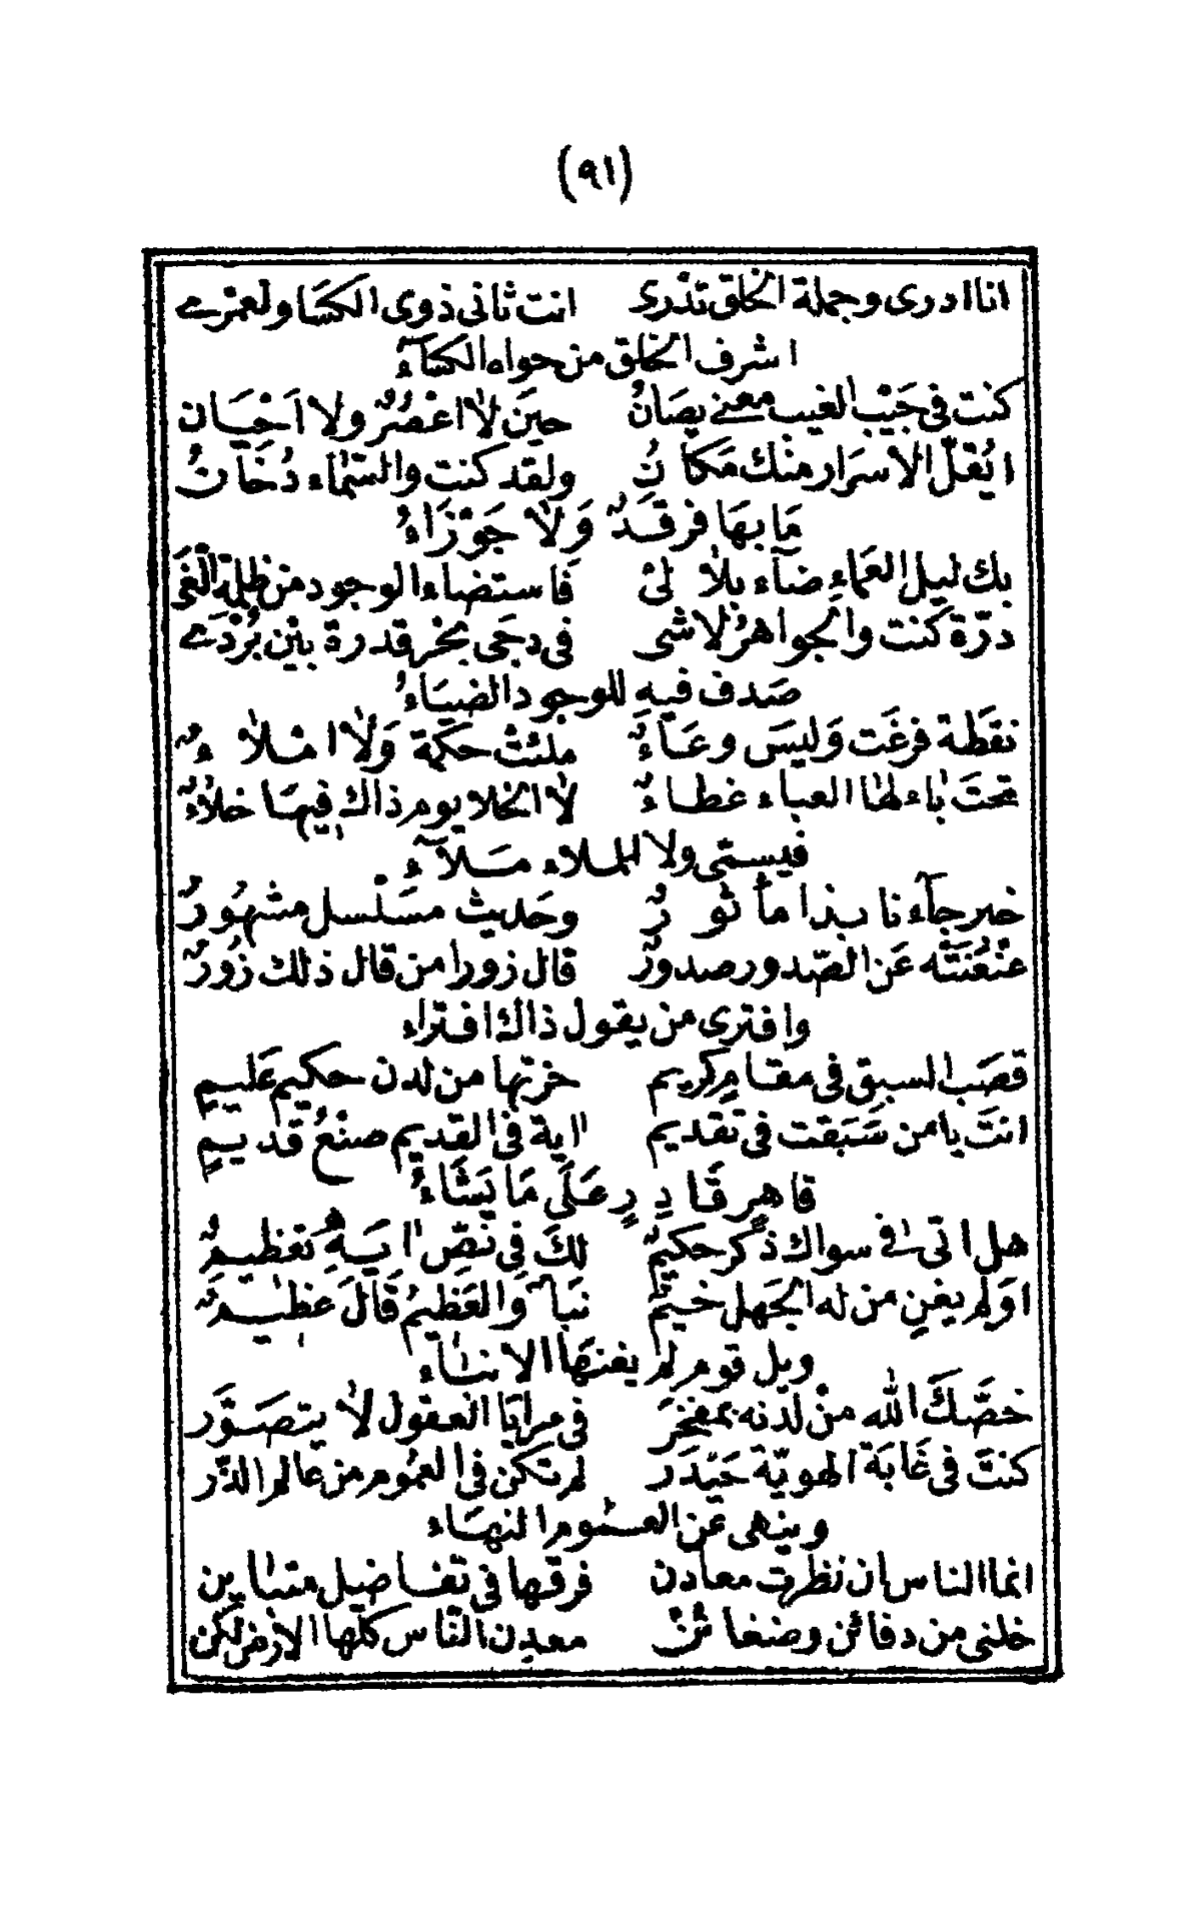 (٩١)
انا ادرى وجملة الخلق تدْرى انت ثانى ذوى الكسَا ولعمْرے
اشرف الخلق من حواه الكسآءُ
كنت فى جَيْب الغيب معنے يصَانُ حينَ لاٰ اعْصُرٌ ولا اَحْيَان
اثقلّ الاسرار منْك مَكاٰنُ ولقد كنت والسَّماٰء دُخَانُ
مَا بهَا فرقَدٌ وَلاٰ جَوْزَاءُ
بك ليل العَماءِ ضآء بلاٰ لئ فاستضاء الوجود من ظلمة الغَى
درّة كنت والجواهرُ لاشى فى دجَى بحْر قدرة بيْن بُرْدَے
صَدف فيه للوجود الضيَاءُ
نقطة فرغَت وَليسَ وعَاءٌ ملئتْ حكمَة وَلاٰ امْلاٰءٌ
تحتَ بٰاء لهٰا العبٰاء غطاءٌ لاٰ الخلا يوم ذاك فيهَا خلاٰءٌ
فيسمّى ولا الملاء مَلآءُ
خبر جآء نا بذا مأثورٌ وحَديث مسَلْسل مشهُورٌ
عنْعَنَتْه عَن الصّدور صدورٌ قال زورا من قال ذلك زُورٌ
وافترى من يقول ذاك افتراء
قصَب السبق فى مقام كريم حزتها من لدن حكيم عَليمٍ
انتَ يا من سَبَقت فى تقديم اٰية فى القديم صنْعُ قديمٍ
قاهرٍ قَادِرٍ عَلَى مَا يَشَاءُ
هل اتىٰ فى سواك ذكر حكيمٌ لكَ فى نَصِّ اٰيَةٍ تعْظيمٌ
اوَلم يغنِ من له الجَهل خيْمٌ نبَأٌ وَالعَظيمُ قَالَ عظيمٌ
ويل قوم لم يغنهَا الانبٰاء
خصَّكَ الله منْ لدنه بمفخَر فى مرايَا العقول لاٰ يتصَوَّر
كنتَ فى غَابَة الهويّة حَيْدَر لم تكن فى العمُوم من عالم الذّر
وينهى عَن العمُوم النهَاء
انما الناس ان نظرت معادن فرقّها فى تفاضيل متبٰاين
خلنى من دفائن وضغائنٌ معدن النّاس كلّها الارْض لكن